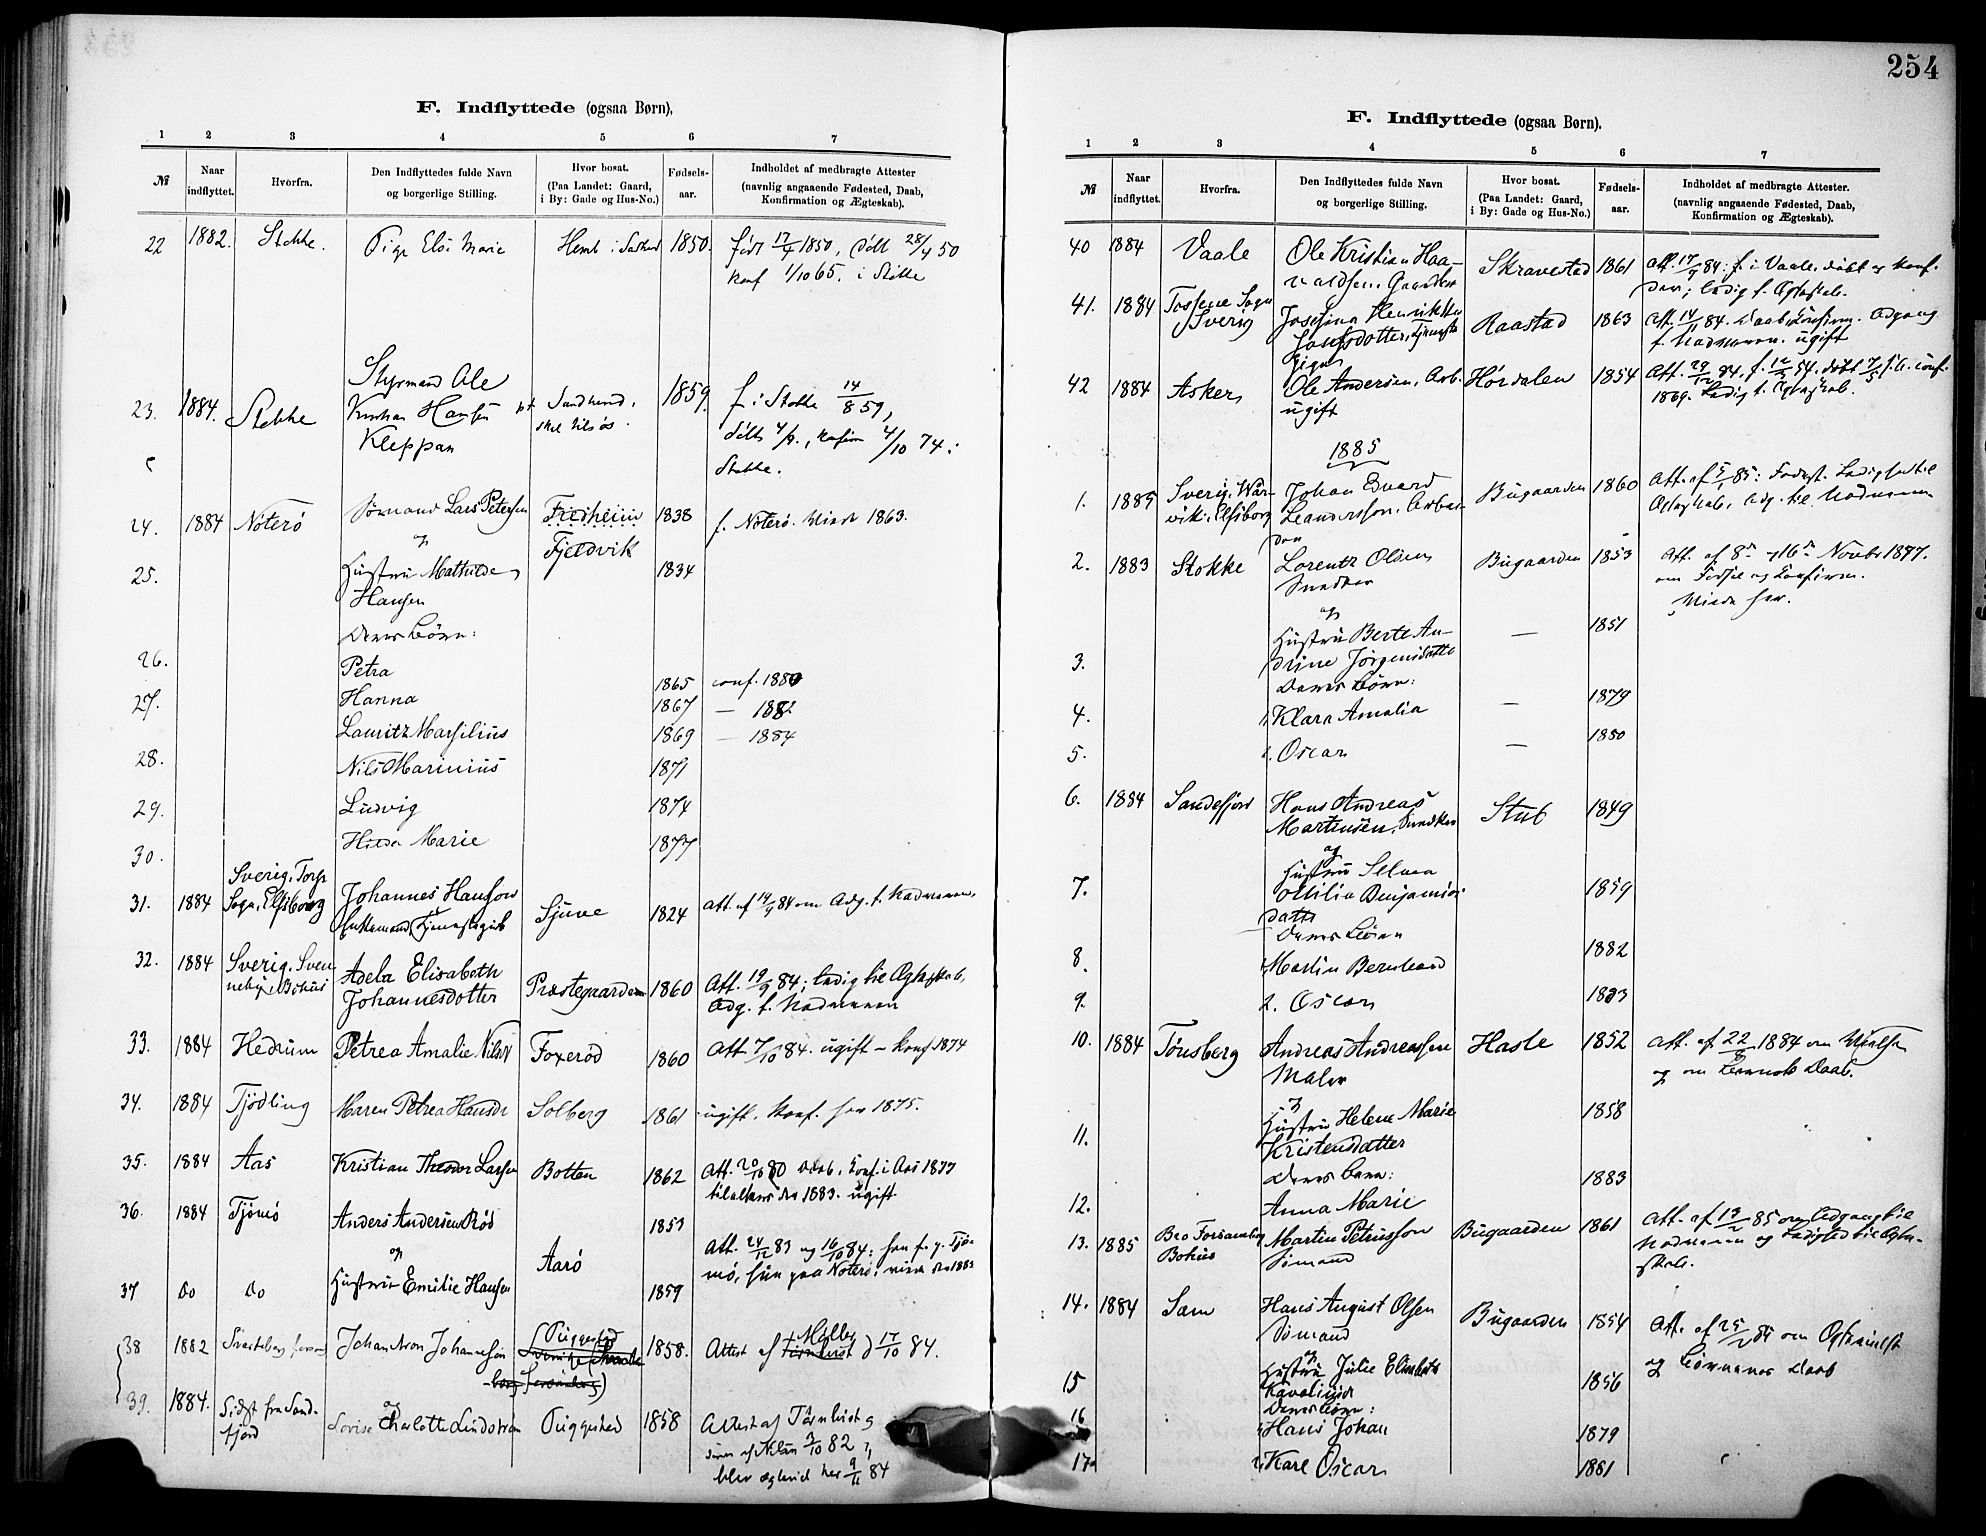 254
F. Indflyttede (ogsaa Børn),
1 2 3 4 5 6 7
№ Naar indflyttet. Hvorfra. Den Indflyttedes fulde Navn og borgerlige Stilling. Hvor bosat. (Paa Landet: Gaard, i By: Gade og Hus-No.) Fødsels-aar. Indholdet af medbragte Attester (navnlig angaaende Fødested, Daab, Konfirmation og Ægteskab).
22 1882. Stokke. Pige Else Marie 1850. født 17/4 1850, døbt 28/4 50
konf 1/10 65. i Stokke
Styrmand Ole
23. 1884. Stokke Kristian Hansen 1859. f i Stokke 14/8 59,
Kleppan
Stokke.
24. 1884 Nøterø Sømand Lars Petersen Fredheim 1838 f. Nøterø. Viede 1863.
og Fjeldvik
25. Hustru Mathilde 1834
Hansen
Deres Børn:
26. Petra 1865 conf. 1880
27. Hanna 1867 — 1882
Lauritz Marsilius 1869 — 1884
28. Nils Marinius 1871
29. Ludvig 1874
30. Hilda Marie 1877
Sverig. Torp
31. 1884 Sogn, Elfsborg Johannes Hansson Sjuve 1824 Att. af 14/9 84 om Adg. t. Nadveren.
32. 1884 Sverig. Svenneby, Bohus Adela Elisabeth Johannesdotter Præstegaarden 1860 Att. 19/9 84; ledig til Ægteskab,
Adg. t. Nadveren
33. 1884 Hedrum Petrea Amalie Nilsd Foxerød 1860 Att 7/10 84. ugift – konf 1874
34. 1884 Tjødling Maren Petrea Hansdr Solberg 1861 ugift. Konf. her 1875.
35. 1884 Aas Kristian Theodor Larsen Botten 1862 Att. 20/10 80 Daab, Konf. i Aas 1877
1883. ugift
36. 1884 Tjømø Anders Andersen Rød 1853
og Aarø Att. 24/12 83 og 16/10 84: han f. p. Tjømø, hun paa Nøterø; viede 1883
37 do do Hustru Emilie Hansen 1859
38 1882 Johan Aron Johannesson Puggestad 1858. Attest af Møller d 17/10 84.
og
39. 1884. Sidst fra Sandefjord Lovise Charlotte Lindstrøm Puggestad 1858 Attest af
3/10 82
blev ægteviet her 9/11 84
F. Indflyttede (ogsaa Børn).
1 2 3 4 5 6 7
№ Naar indflyttet. Hvorfra. Den Indflyttedes fulde Navn og borgerlige Stilling. Hvor bosat. (Paa Landet: Gaard, i By: Gade og Hus-No.) Fødsels-aar. Indholdet af medbragte Attester. (navnlig angaaende Fødested, Daab, Konfirmation og Ægteskab).
40 1884 Vaale Ole Kristian Haavaldsen. Skravestad 1861 Att. 17/9 84: f. i Vaale, døbt og konf.
der; ledig t. Ægteskab.
41. 1884 Tossene Sogn Sverig Josefina Henrikka Raastad 1863 Att. 14/11 84. Daab, Konfirm. Adgang
t. Nadveren. ugift
42 1884 Asker Ole Andersen, Arb. ugift Hørdalen 1854 Att. 29/12 84. f. 12/3 54. døbt 7/5 s. a. conf.
1869. Ledig t. Ægteskab.
1885
1. 1885 Sverig. Warvik. Elfsborg Johan Edvard Leandersson. Bugaarden 1860 Att. af 5/1 85: Ledighed til
Ægteskab, Adg. til Nadveren
2. 1883 Stokke Lorentz Olsen Snedker Bugaarden 1853 Att. af 8de og 16de Novbr 1877.
om Fødsel og Confirm.
Viede her.
og
3. Hustru Berte Andrine Jørgensdatter — 1851
Deres Børn:
4. 1. Klara Amalia — 1879
5. 2. Oscar — 1880
6. 1884 Sandefjord Hans Andreas Martinsen, Snedker Stub 1849
og
7. Hustru Selma Ottilia Benjaminsdatter 1859
Deres Børn
8. 1. Martin Bernhard 1882
9. 2. Oscar 1883
10. 1884 Tønsberg Andreas Andreassen Maler Hasle 1852 Att. af 22/8 1884 om Vielse
og om Barnets Daab.
og
11. Hustru Helene Marie Kristensdatter 1858
Deres Barn:
12. Anna Marie 1883
13. 1885 Bro Forsamling Bohus Martin Petersson Sømand Bugaarden 1861 Att. af 13/2 85 om Adgang til
Nadveren og Ledighed til Ægteskab.
14. 1884 Sem Hans August Olsen Sømand Bugaarden 1854 Att. af 25/2 85 om Ægtevielse
og Børnenes Daab
og
15 Hustru Julie Elisabeth 1856
Deres Børn:
16 1. Hans Johan 1879
17. 2. Karl Oscar 1881